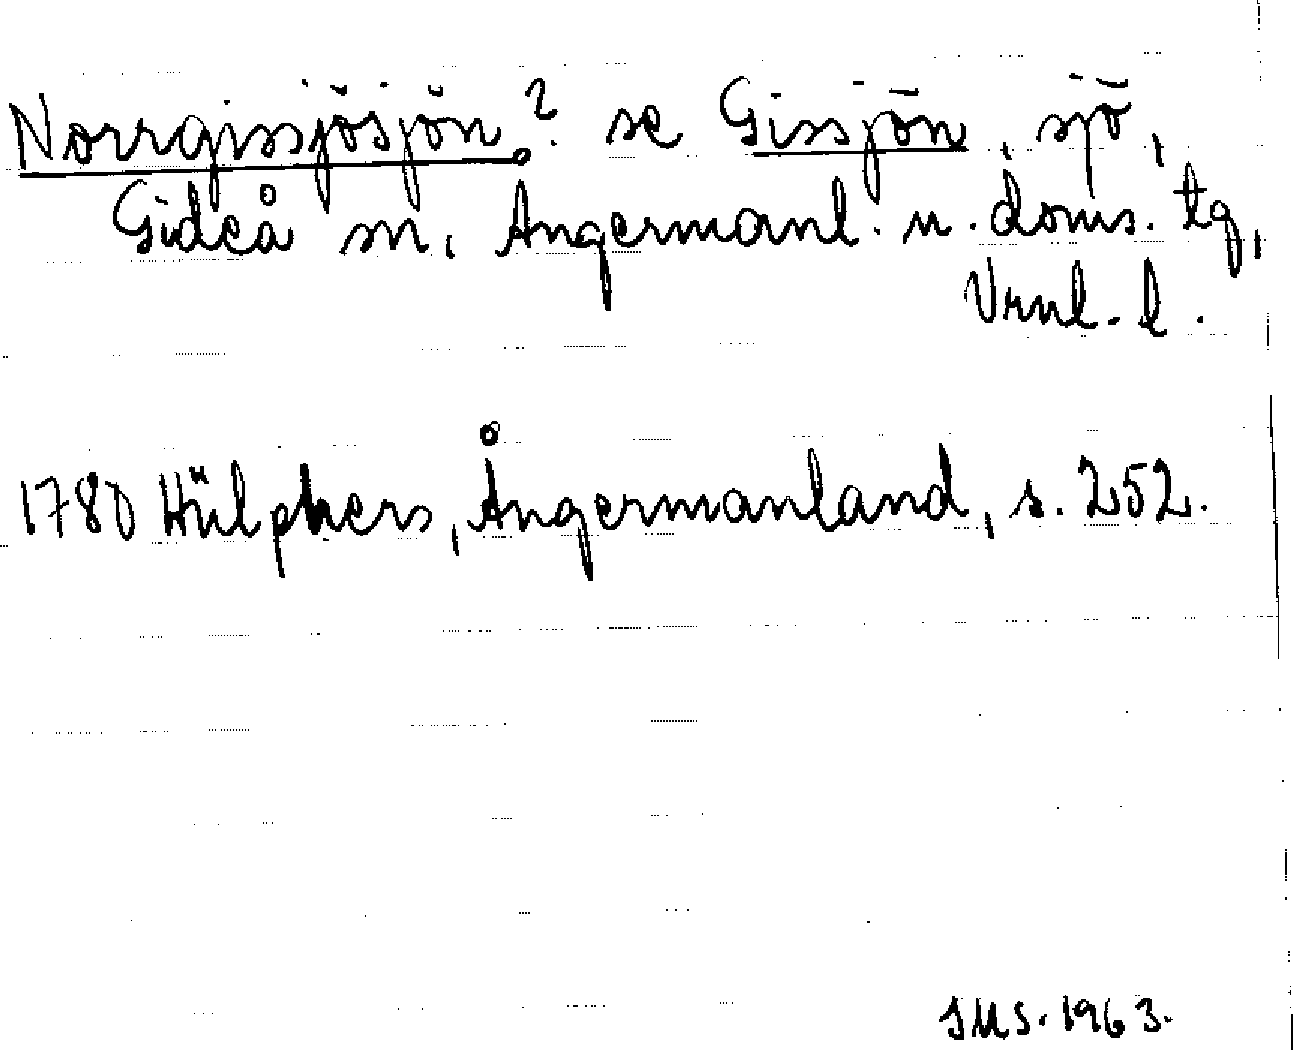 Norrgissjösjön? se Gissjön, sjö,
Gideå sn, Ångermanl. n. doms. tg,
Vrnl. l.
1780 Hülphers, Ångermanland, s. 252.
SMS. 1963.